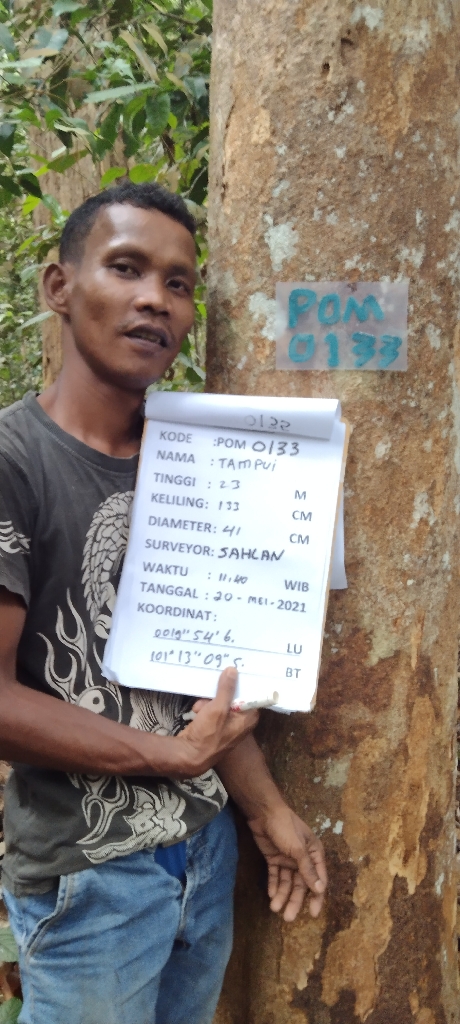 POM
0133
0132
KODE :POM 0133
NAMA : TAMPUI
TINGGI : 23 M
KELILING: 133 CM
DIAMETER: 41 CM
SURVEYOR: SAHLAN
WAKTU : 11.40 WIB
TANGGAL : 20 - MEI - 2021
KOORDINAT:
0019" 54' 6. LU
101° 13" 09" 5. BT